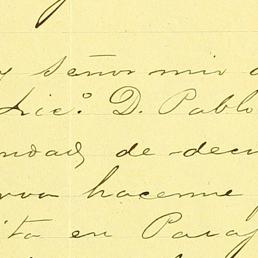 y señor mio
Lic.º D. Pablo
ndad de deci
rva hacerme
ita en Para